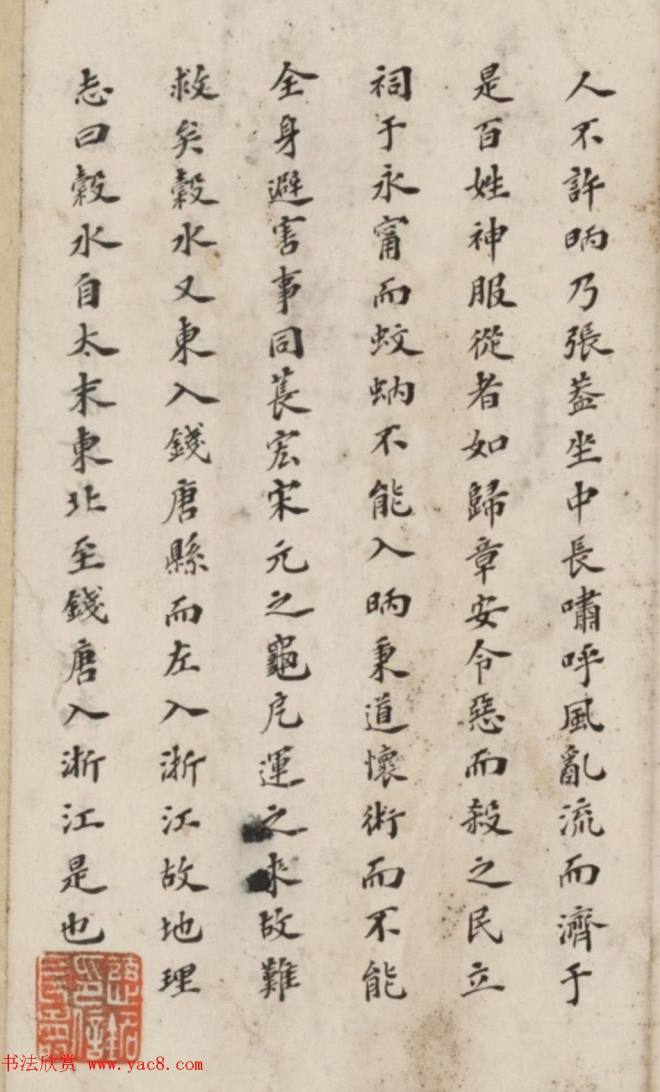 人不許昞乃張蓋坐中長嘯呼風亂流而濟于
是百姓神服從者如歸章安令惡而殺之民立
祠于永甯而蚊蚋不能入昞秉道懷術而不能
全身避害事同萇宏宋元之龜厄運之來故難
救矣穀水又東入錢唐縣而左入浙江故地理
志曰穀水自太末東北至錢唐入浙江是也
书法欣赏 www.yac8.com